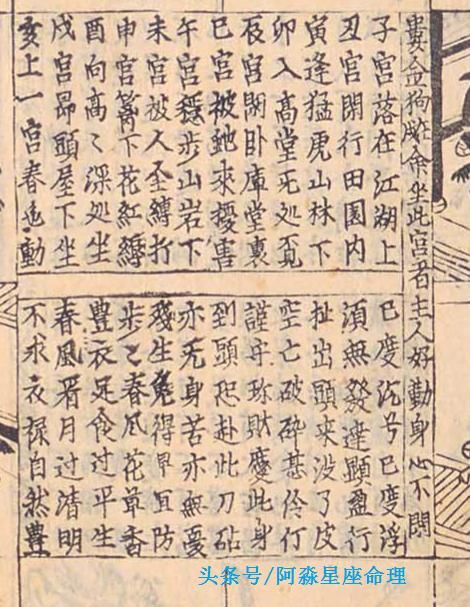 婁金狗余坐此宮者主人好動身心不閑
子宮落在江湖上
已度沉兮已变浮
丑宮閑行田園内
須無發達顕盈行
寅逢猛虎山林下
扯出頭来没了皮
卯入高堂无处覓
空亡破碎甚伶仃
辰宮閑卧庫堂裏
謹守珎財度此身
巳宮被虵來擾害
到頭恐赴此刀砧
午宮穩步山岩下
亦无身苦亦無憂
未宮被人全縛打
殘生免得早宜防
申宮篱下花紅縛
步〻春風花草香
酉向高〻深処坐
豊衣足食过平生
戌宮昂頭屋下坐
春風看月过清明
亥上一宮春色動
不求衣禄自然豊
头条号/阿淼星座命理